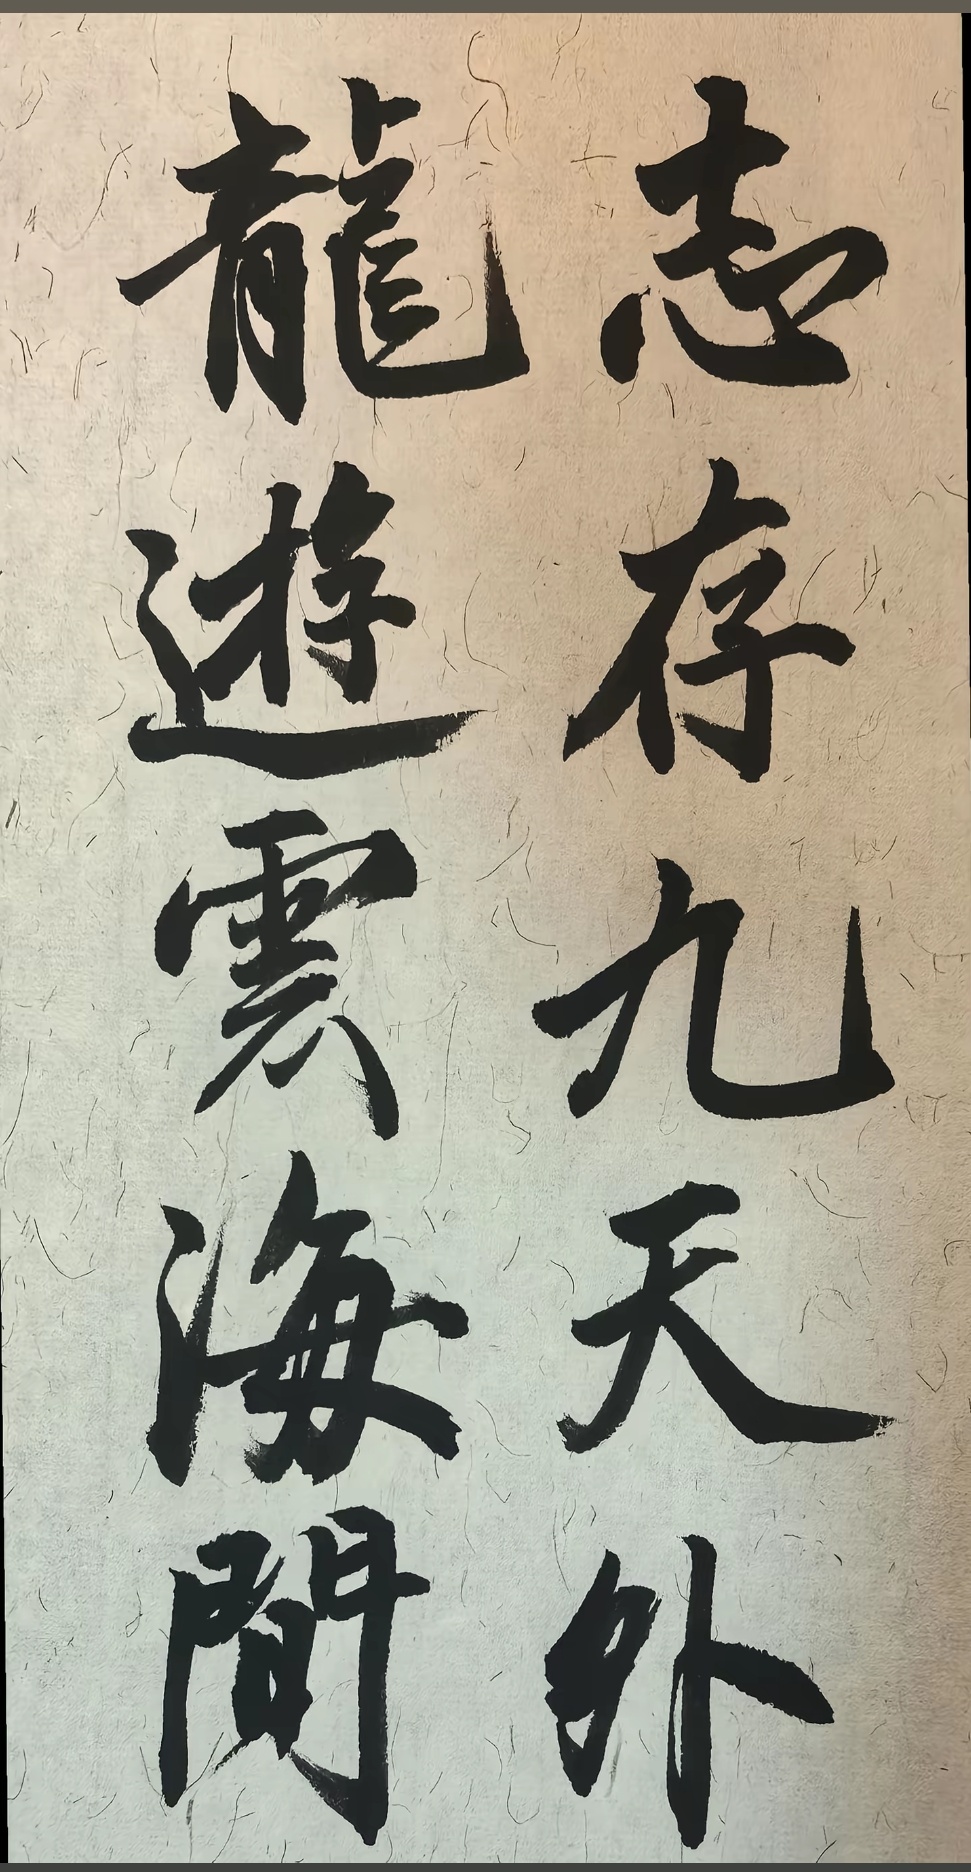 志存九天外
龍遊雲海間